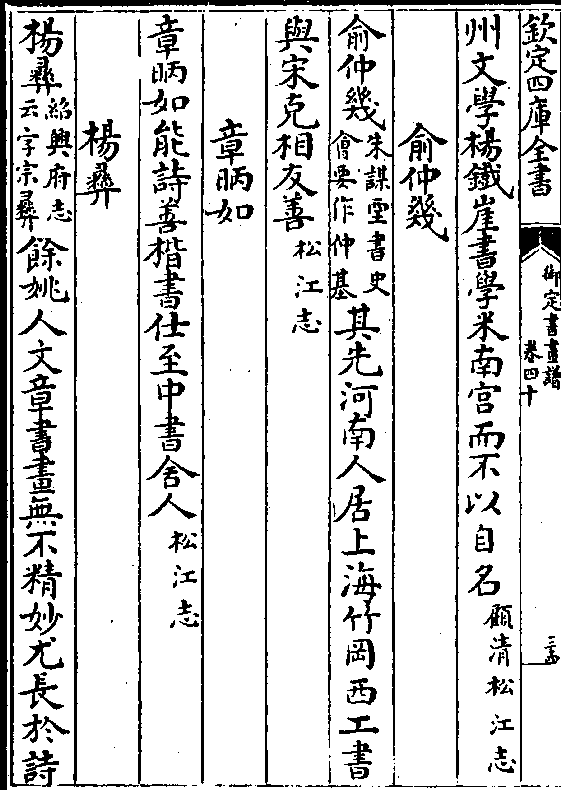 欽定四庫全書
御定書畫譜
卷四十
州文學楊鐵崖書學米南宮而不以自名顧清松江志
俞仲幾
俞仲幾朱謀垔書史
會要作仲基其先河南人居上海竹岡西工書
與宋克相友善松江志
章昞如
章昞如能詩善楷書仕至中書舍人松江志
楊彞
楊彞紹興府志
云字宗彞餘姚人文章書畫無不精妙尤長於詩